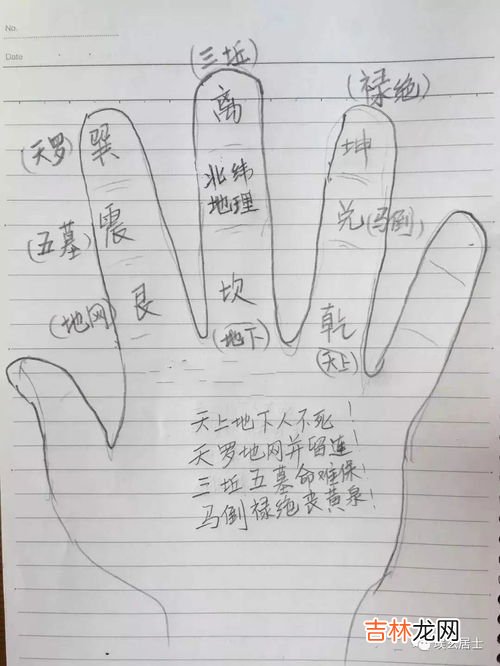 No.
Date
(三坵)
离
(禄绝)
(天罗) 巽
坤
北纬
地理
(五墓) 震
兑 (马倒)
(地网) 艮
坎
(地下)
乾
(天上)
天上地下人不死！
天罗地网并留连！
三坵五墓命难保！
马倒禄绝丧黄泉！
吉林龙网